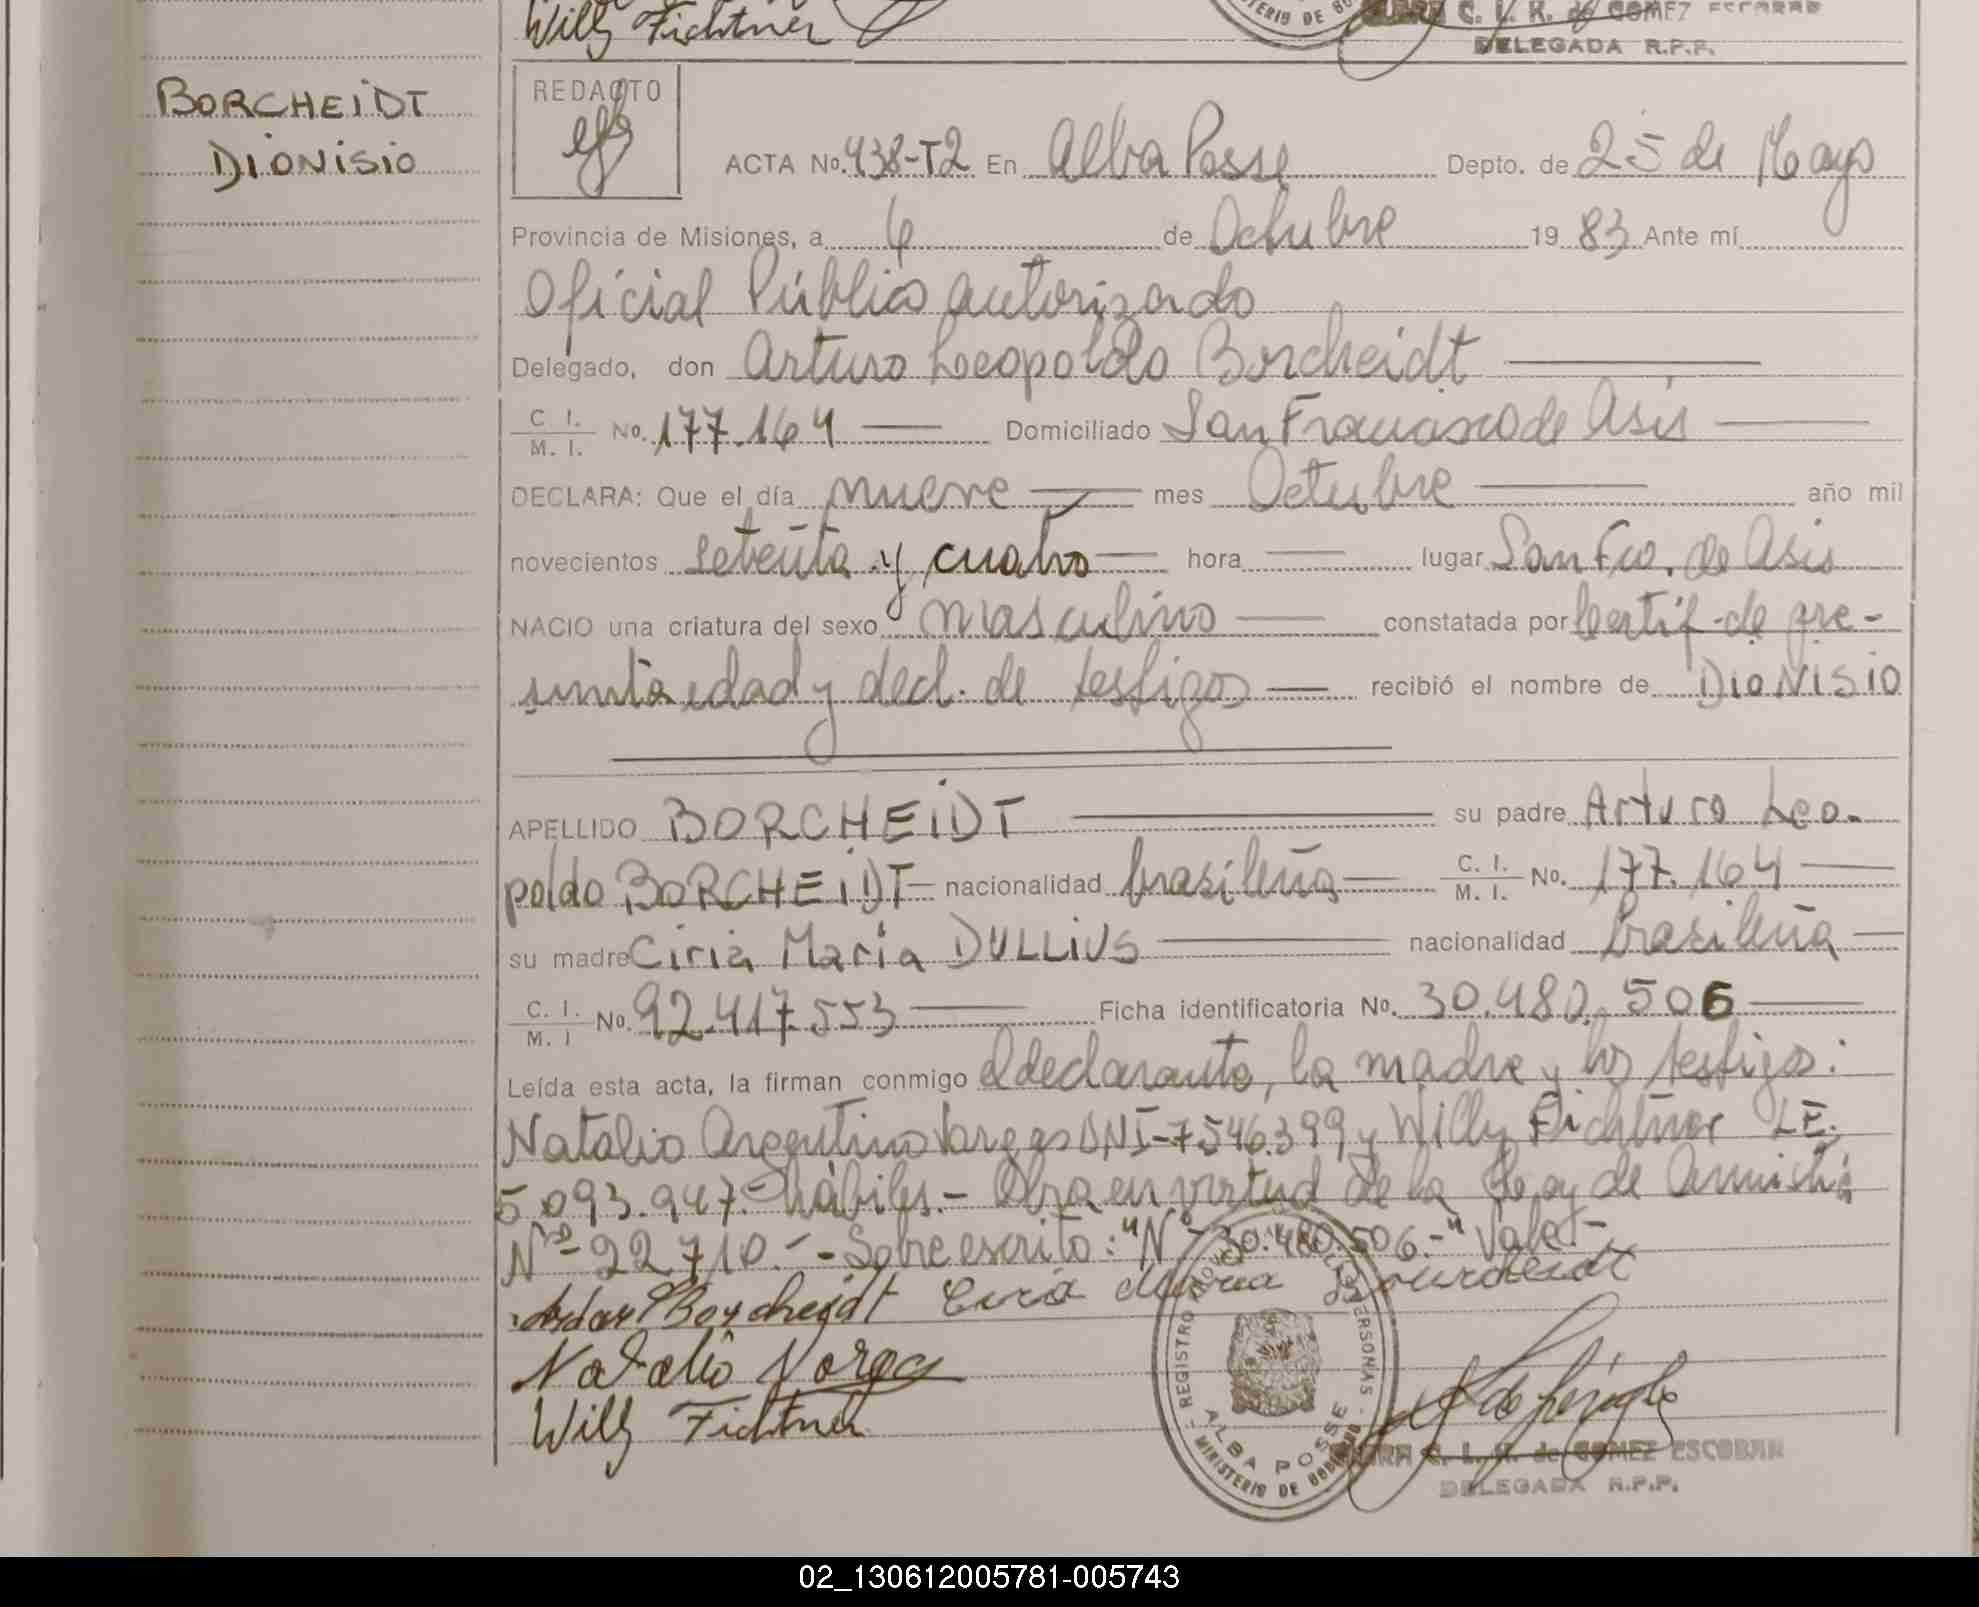 Willy Fichtner
C. L. R. de GOMEZ ESCOBAR
DELEGADA R.P.P.
BORCHEIDT
DIONISIO
REDACTO
ACTA No. 438-T2 En Alba Posse Depto. de 25 de Mayo
Provincia de Misiones, a 6 de Octubre 19 83 Ante mí
Oficial Público autorizado
Delegado, don Arturo Leopoldo Borcheidt
C. I. / M. I. No. 177.164 Domiciliado San Francisco de Asis
DECLARA: Que el día nueve mes Octubre año mil
novecientos setenta y cuatro hora lugar San Fco. de Asis
NACIO una criatura del sexo masculino constatada por Certif. de pre-
sunta edad y decl. de testigos recibió el nombre de DIONISIO
APELLIDO BORCHEIDT su padre Arturo Leo-
poldo BORCHEIDT nacionalidad brasileña C. I. / M. I. No. 177.164
su madre Ciria Maria DULLIUS nacionalidad brasileña
C. I. / M. I No. 92.417.553 Ficha identificatoria No. 30.480.506
Leída esta acta, la firman conmigo el declarante, la madre y los testigos:
Natalio Argentino Vargas DNI-7546.399 y Willy Fichtner LE.
5.093.947.- Hábiles.- Obra en virtud de la Ley de Amnistía
Nº 22.710.- - Sobreescrito: "Nº 30.480.506.-" Vale.-
Borcheidt Ciria Maria Bourcheidt
Natalio Vargas
Willy Fichtner
REGISTRO PROV. DE LAS PERSONAS
ALBA POSSE
MINISTERIO DE GOBIERNO
C. L. R. de GOMEZ ESCOBAR
DELEGADA R.P.P.
02_130612005781-005743